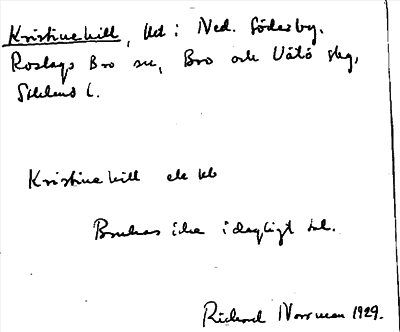 Kristinehill, Ud: Ned. Söderby.
Roslags Bro sn, Bro och Vätö skg,
Sthlms l.
Kristinehill
Brukas icke i dagligt tal.
Rickard Norrman 1929.